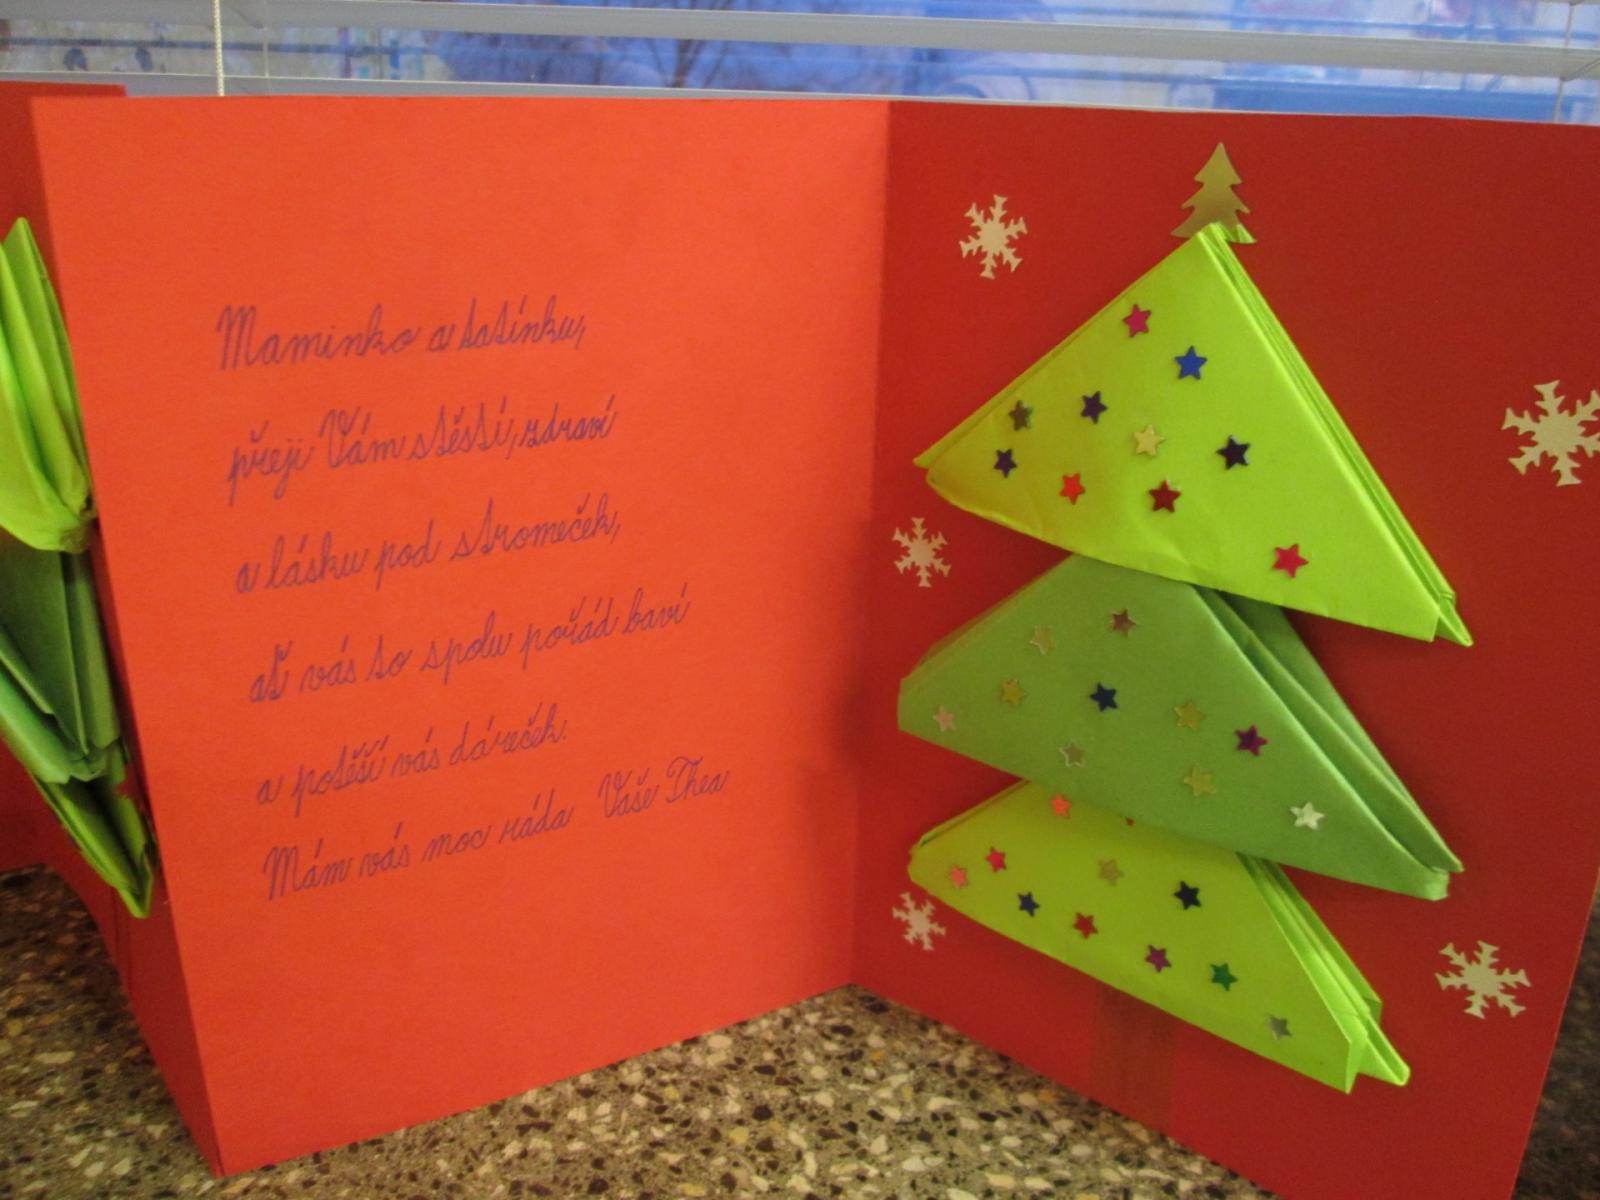 Maminko a tatínku,
přeji Vám štěstí, zdraví
a lásku pod stromeček,
ať vás to spolu pořád baví
a potěší vás dáreček.
Mám vás moc ráda Vaše Thea